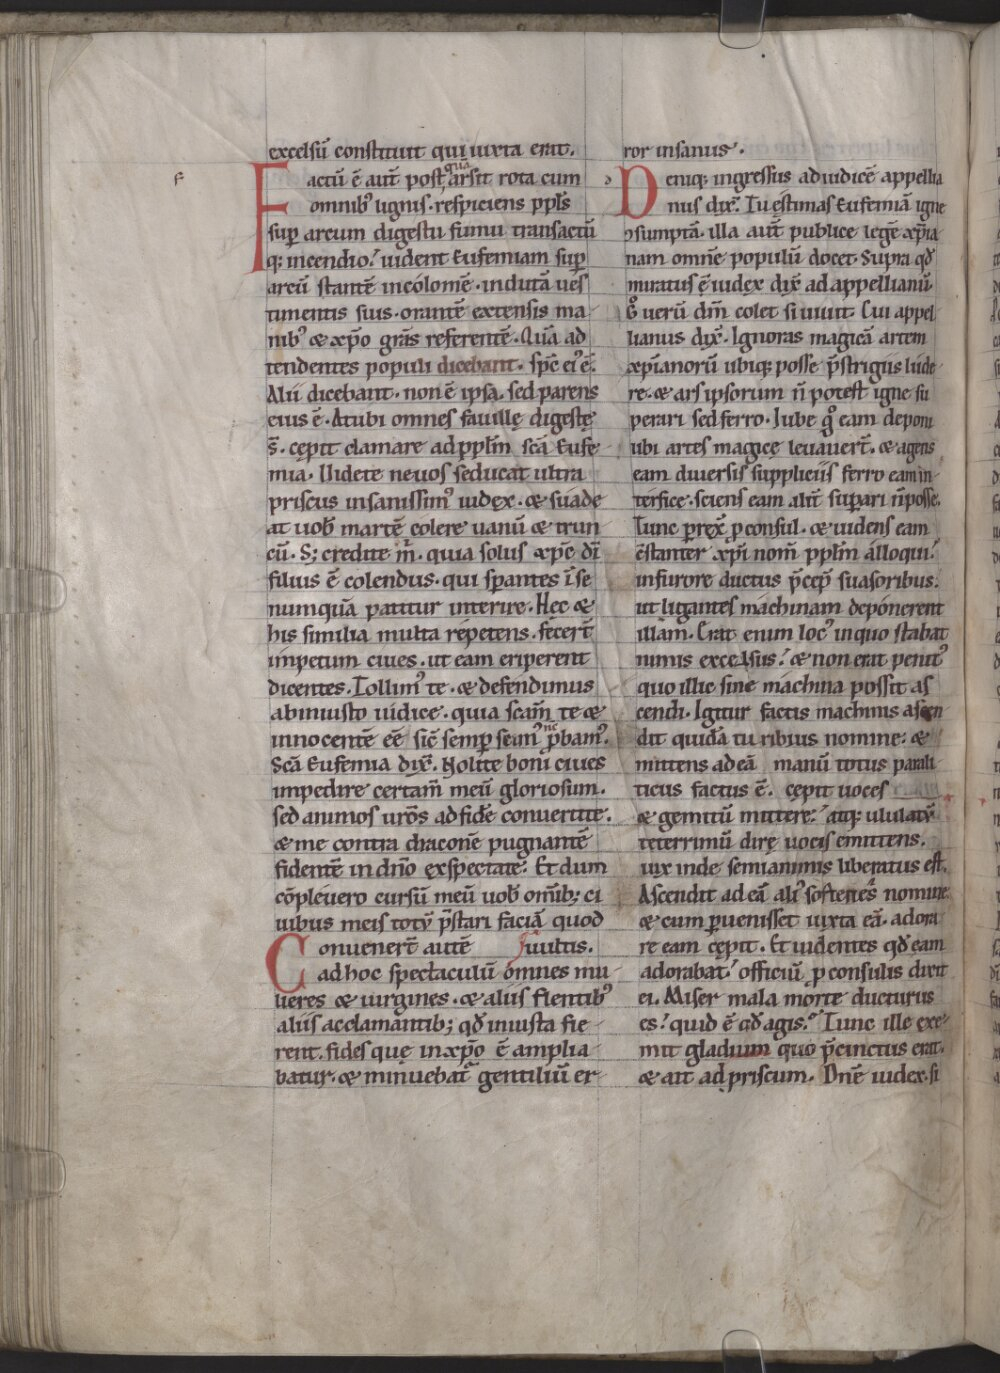 excelsū constituit qui iuxta erat.
Factū ē aut̄ post quā arsit rota cum
omnibꝰ lignis. respiciens ppl̄s
suꝑ arcum digestu fumu transactū
qꝫ incendio. uident Eufemiam suꝑ
arcū stantē incolomē. indutā ues
timentis suis. orantē extensis ma
nibꝰ & xp̄o grās referentē. Quā ad
tendentes populi dicebant. sp̄c eiꝰ ē.
Alii dicebant. non ē ipsa. sed parens
eius ē. At ubi omnes fauillę digestę
s̄. cępit clamare ad pplm̄ scā Eufe
mia. Uidete ne uos seducat ultra
priscus insanissimꝰ iudex. & suade
at uob̄ martē colere uanū & trun
cū. Sꝫ credite m̄. quia solus xp̄c dī
filius ē colendus. qui sꝑantes ī se
numquā patitur interire. Hec &
his similia multa repetens. fecer̄t
impetum ciues. ut eam eriperent
dicentes. Tollimꝰ te. & defendimus
ab iniusto iudice. quia scam̄ te &
innocentē eē sic̄ semꝑ scimꝰ nc̄ ꝓbamꝰ.
Scā Eufemia dix̄. Nolite boni ciues
impedire certam̄ meū gloriosum.
sed animos urōs ad fidē conuertite.
& me contra draconē pugnantē
fidentē in dn̄o exspectate. Et dum
cōpleuero cursū meū uob̄ omībꝫ ci
uibus meis totū p̄stari faciā quod
Conuener̄t autē uultis.
ad hoc spectaculū omnes mu
lieres & uirgines. & aliis flentibꝰ
aliis acclamantibꝫ qd̄ iniusta fie
rent. fidesque in xp̄o ē amplia
batur. & minuebat᷑ gentiliū er
ror insanus.
Deniqꝫ ingressus ad iudicē appellia
nus dix̄. Tu ęstimas Eufemiā igne
ꝯsumptā. illa aut̄ publice legē xp̄ia
nam omnē populū docet. Supra qd̄
miratus ē iudex dix̄ ad appellianū.
uerū dm̄ colet si uiuit. Cui appel
lianus dix̄. Ignoras magicā artem
xp̄ianorū ubiqꝫ posse p̄strigiis lude
re. & ars ipsorum n̄ potest igne su
perari sed ferro. Iube gͦ eam deponi
ubi artes magicę leuauer̄t. & agens
eam diuersis suppliciis ferro eam in
terfice. sciens eam alit̄ suꝑari n̄ posse.
Tunc prex̄ ꝓconsul. & uidens eam
cstanter xp̄i nom̄ pplm̄ alloqui.
in furore ductus p̄cep̄ suasoribus.
ut ligantes machinam deponerent
illam. Erat enim locꝰ in quo stabat
nimis excelsus. & non erat penitꝰ
quo illic sine machina possit as
cendi. Igitur factis machinis ascen
dit quidā turibius nomine. &
mittens ad eā manū totus parali
ticus factus ē. cępit uoces
& gemitū mittere. atqꝫ ululatū
teterrimū dirę uocis emittens.
uix inde semianimis liberatus est.
Ascendit ad eā aliꝰ softenes nomine
& cum ꝑuenisset iuxta eā. adora
re eam cępit. Et uidentes qd̄ eam
adorabat. officiū ꝓconsulis dixit
ei. Miser mala morte ducturus
es. quid ē qd̄ agis. Tunc ille exe
mit gladium quo p̄cinctus erat.
& ait ad priscum. Dn̄e iudex. si